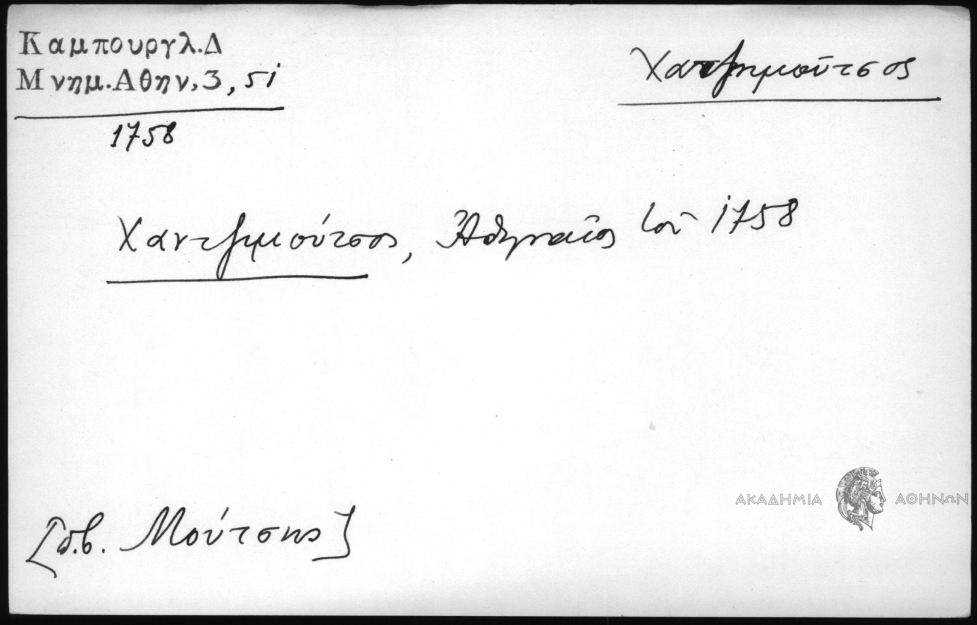 Καμπουργλ.Δ
Μνημ.Αθην,3,51
1758
Χατζημοῦτσος
Χαντζιμούτσος, Ἀθηναῖος τοῦ 1758
[πβ. Μούτσης]
ΑΚΑΔΗΜΙΑ ΑΘΗΝΩΝ